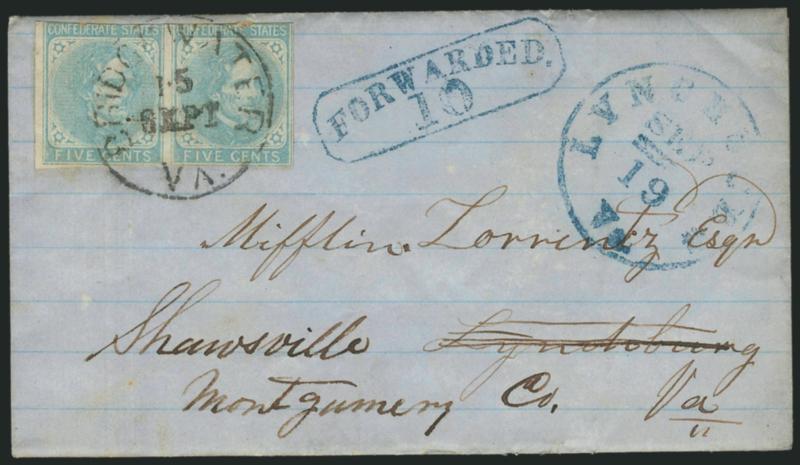 CONFEDERATE STATES CONFEDERATE STATES
FIVE CENTS FIVE CENTS
BRIDGEWATER
15
SEPT
VA.
FORWARDED.
10
LYNCHBURG
SEP
19
VA
Mifflin Lorrentz Esqr
Shawsville Lynchburg
Montgumery Co. Va